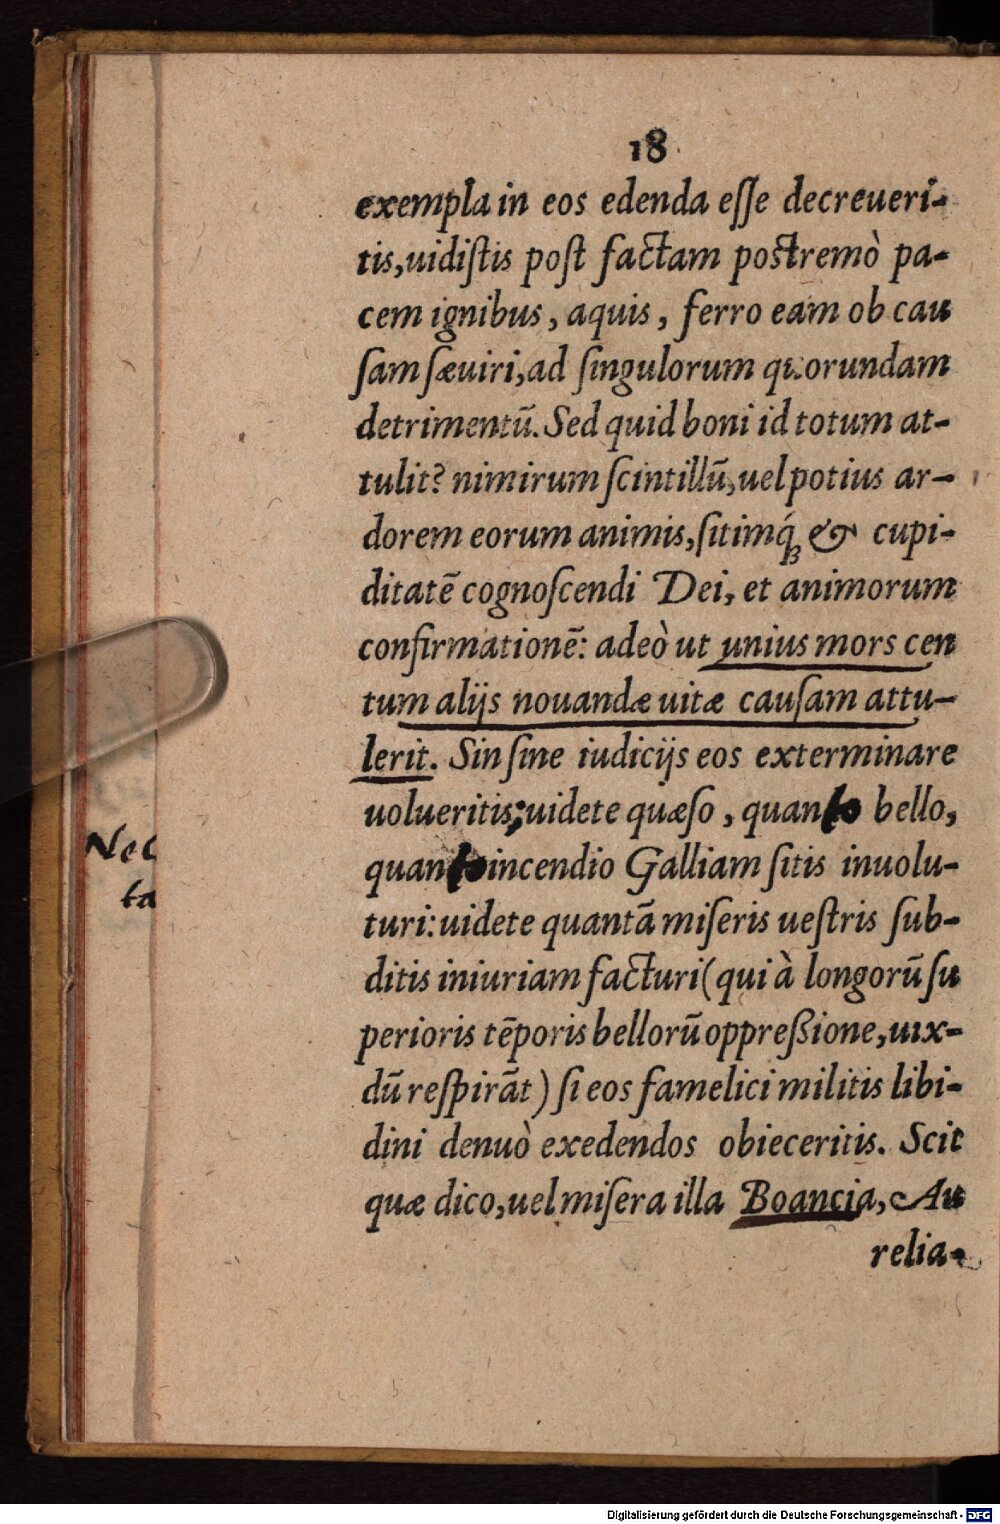 18
exempla in eos edenda eſſe decreueri-
tis, uidiſtis poſt factam poſtremò pa-
cem ignibus, aquis, ferro eam ob cau
ſam ſæuiri, ad ſingulorum quorundam
detrimentũ. Sed quid boni id totum at-
tulit? nimirum ſcintillũ, uel potius ar-
dorem eorum animis, ſitimq́ꝫ & cupi-
ditatẽ cognoſcendi Dei, et animorum
confirmationẽ: adeò ut unius mors cen
tum alijs nouandæ uitæ cauſam attu-
lerit. Sin ſine iudicijs eos exterminare
uolueritis; uidete quæſo, quanto bello,
quanto incendio Galliam ſitis inuolu-
turi: uidete quantã miſeris ueſtris ſub-
ditis iniuriam facturi (qui à longorũ ſu
perioris tẽporis bellorũ oppreßione, uix-
dũ reſpirãt) ſi eos famelici militis libi-
dini denuò exedendos obieceritis. Scit
quæ dico, uel miſera illa Boancia, Au
relia-
Digitalisierung gefördert durch die Deutsche Forschungsgemeinschaft - DFG